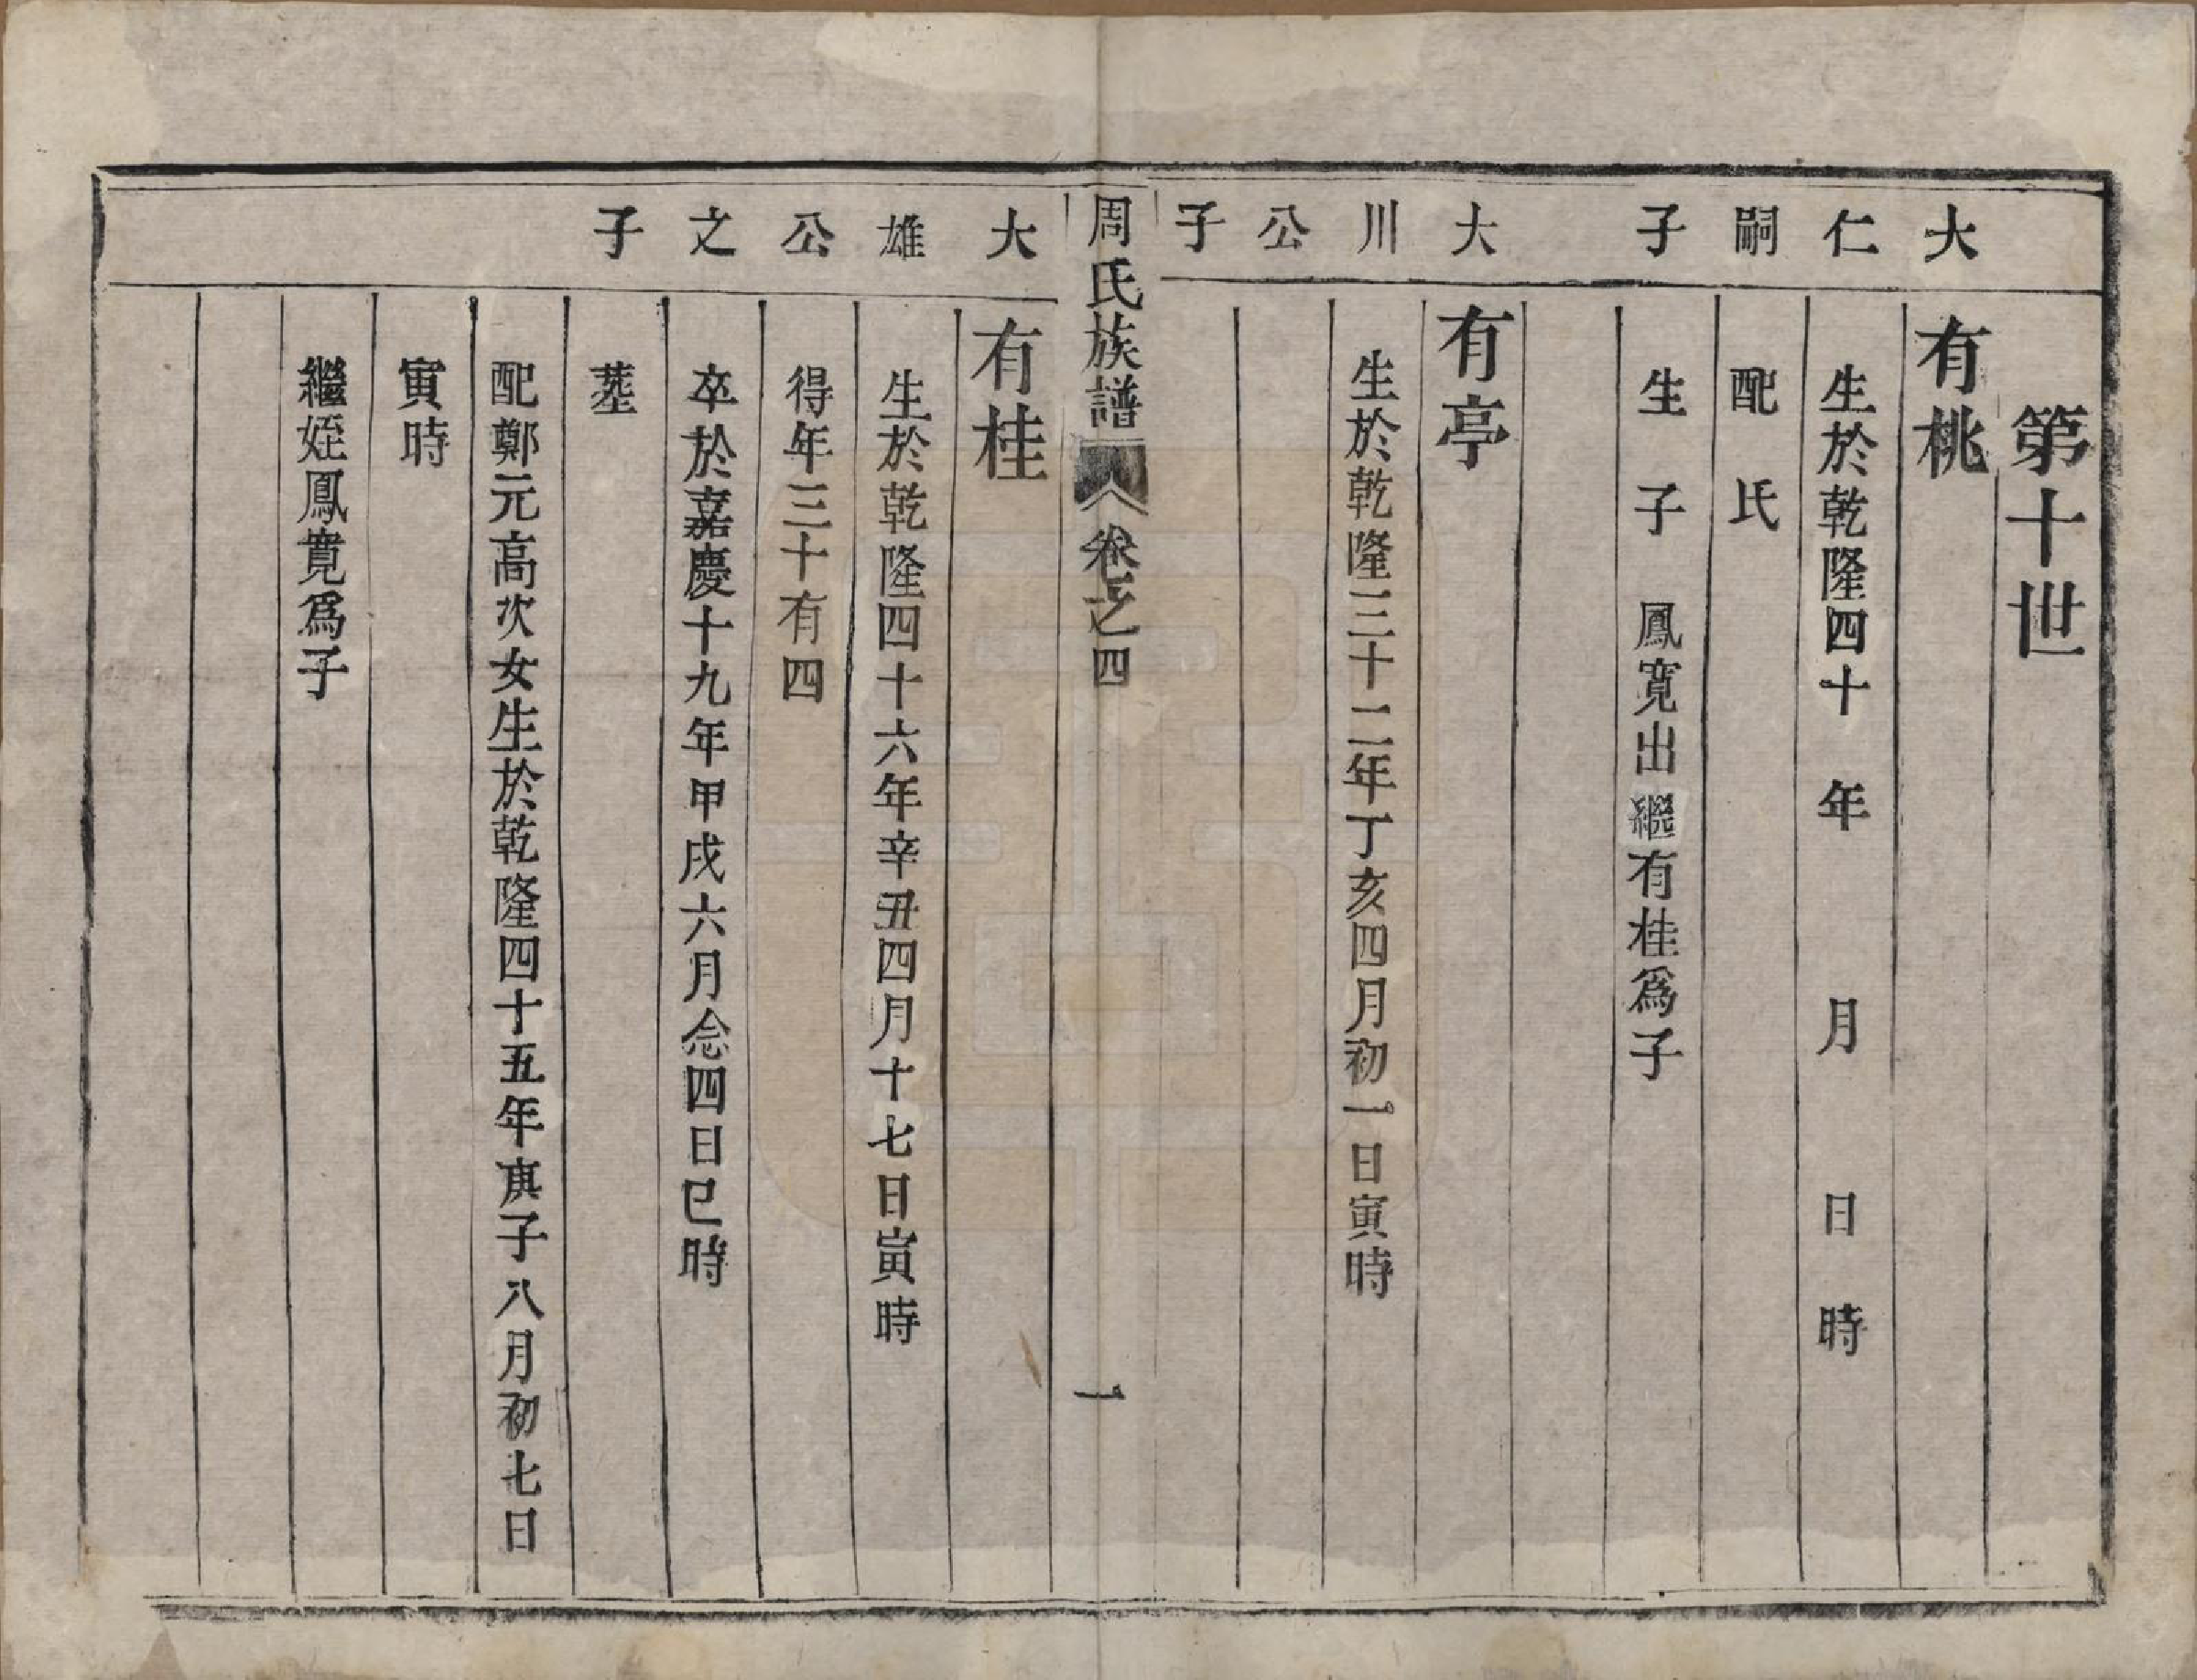 第十世
大仁嗣子
有桃
生於乾隆四十年月日時
配氏
生子鳳寬出繼有桂爲子
大川公子
有亭
生於乾隆三十二年丁亥四月初一日寅時
周氏族譜卷之四
一
大雄公之子
有桂
生於乾隆四十六年辛丑四月十七日寅時
得年三十有四
卒於嘉慶十九年甲戌六月念四日巳時
塟
配鄭元高次女生於乾隆四十五年庚子八月初七日
寅時
繼姪鳳寬爲子